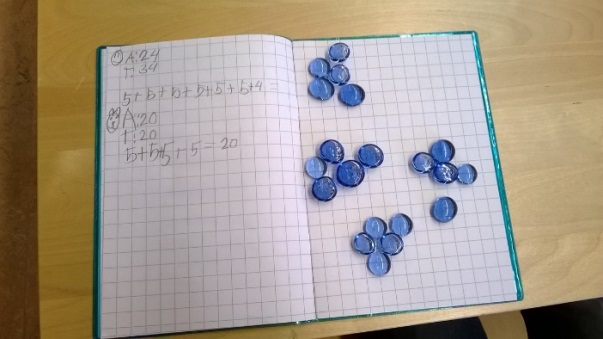 ① A:24
T:34
5+5+5+5+5+5+4=
② A:20
T:20
5+5+5+5=20